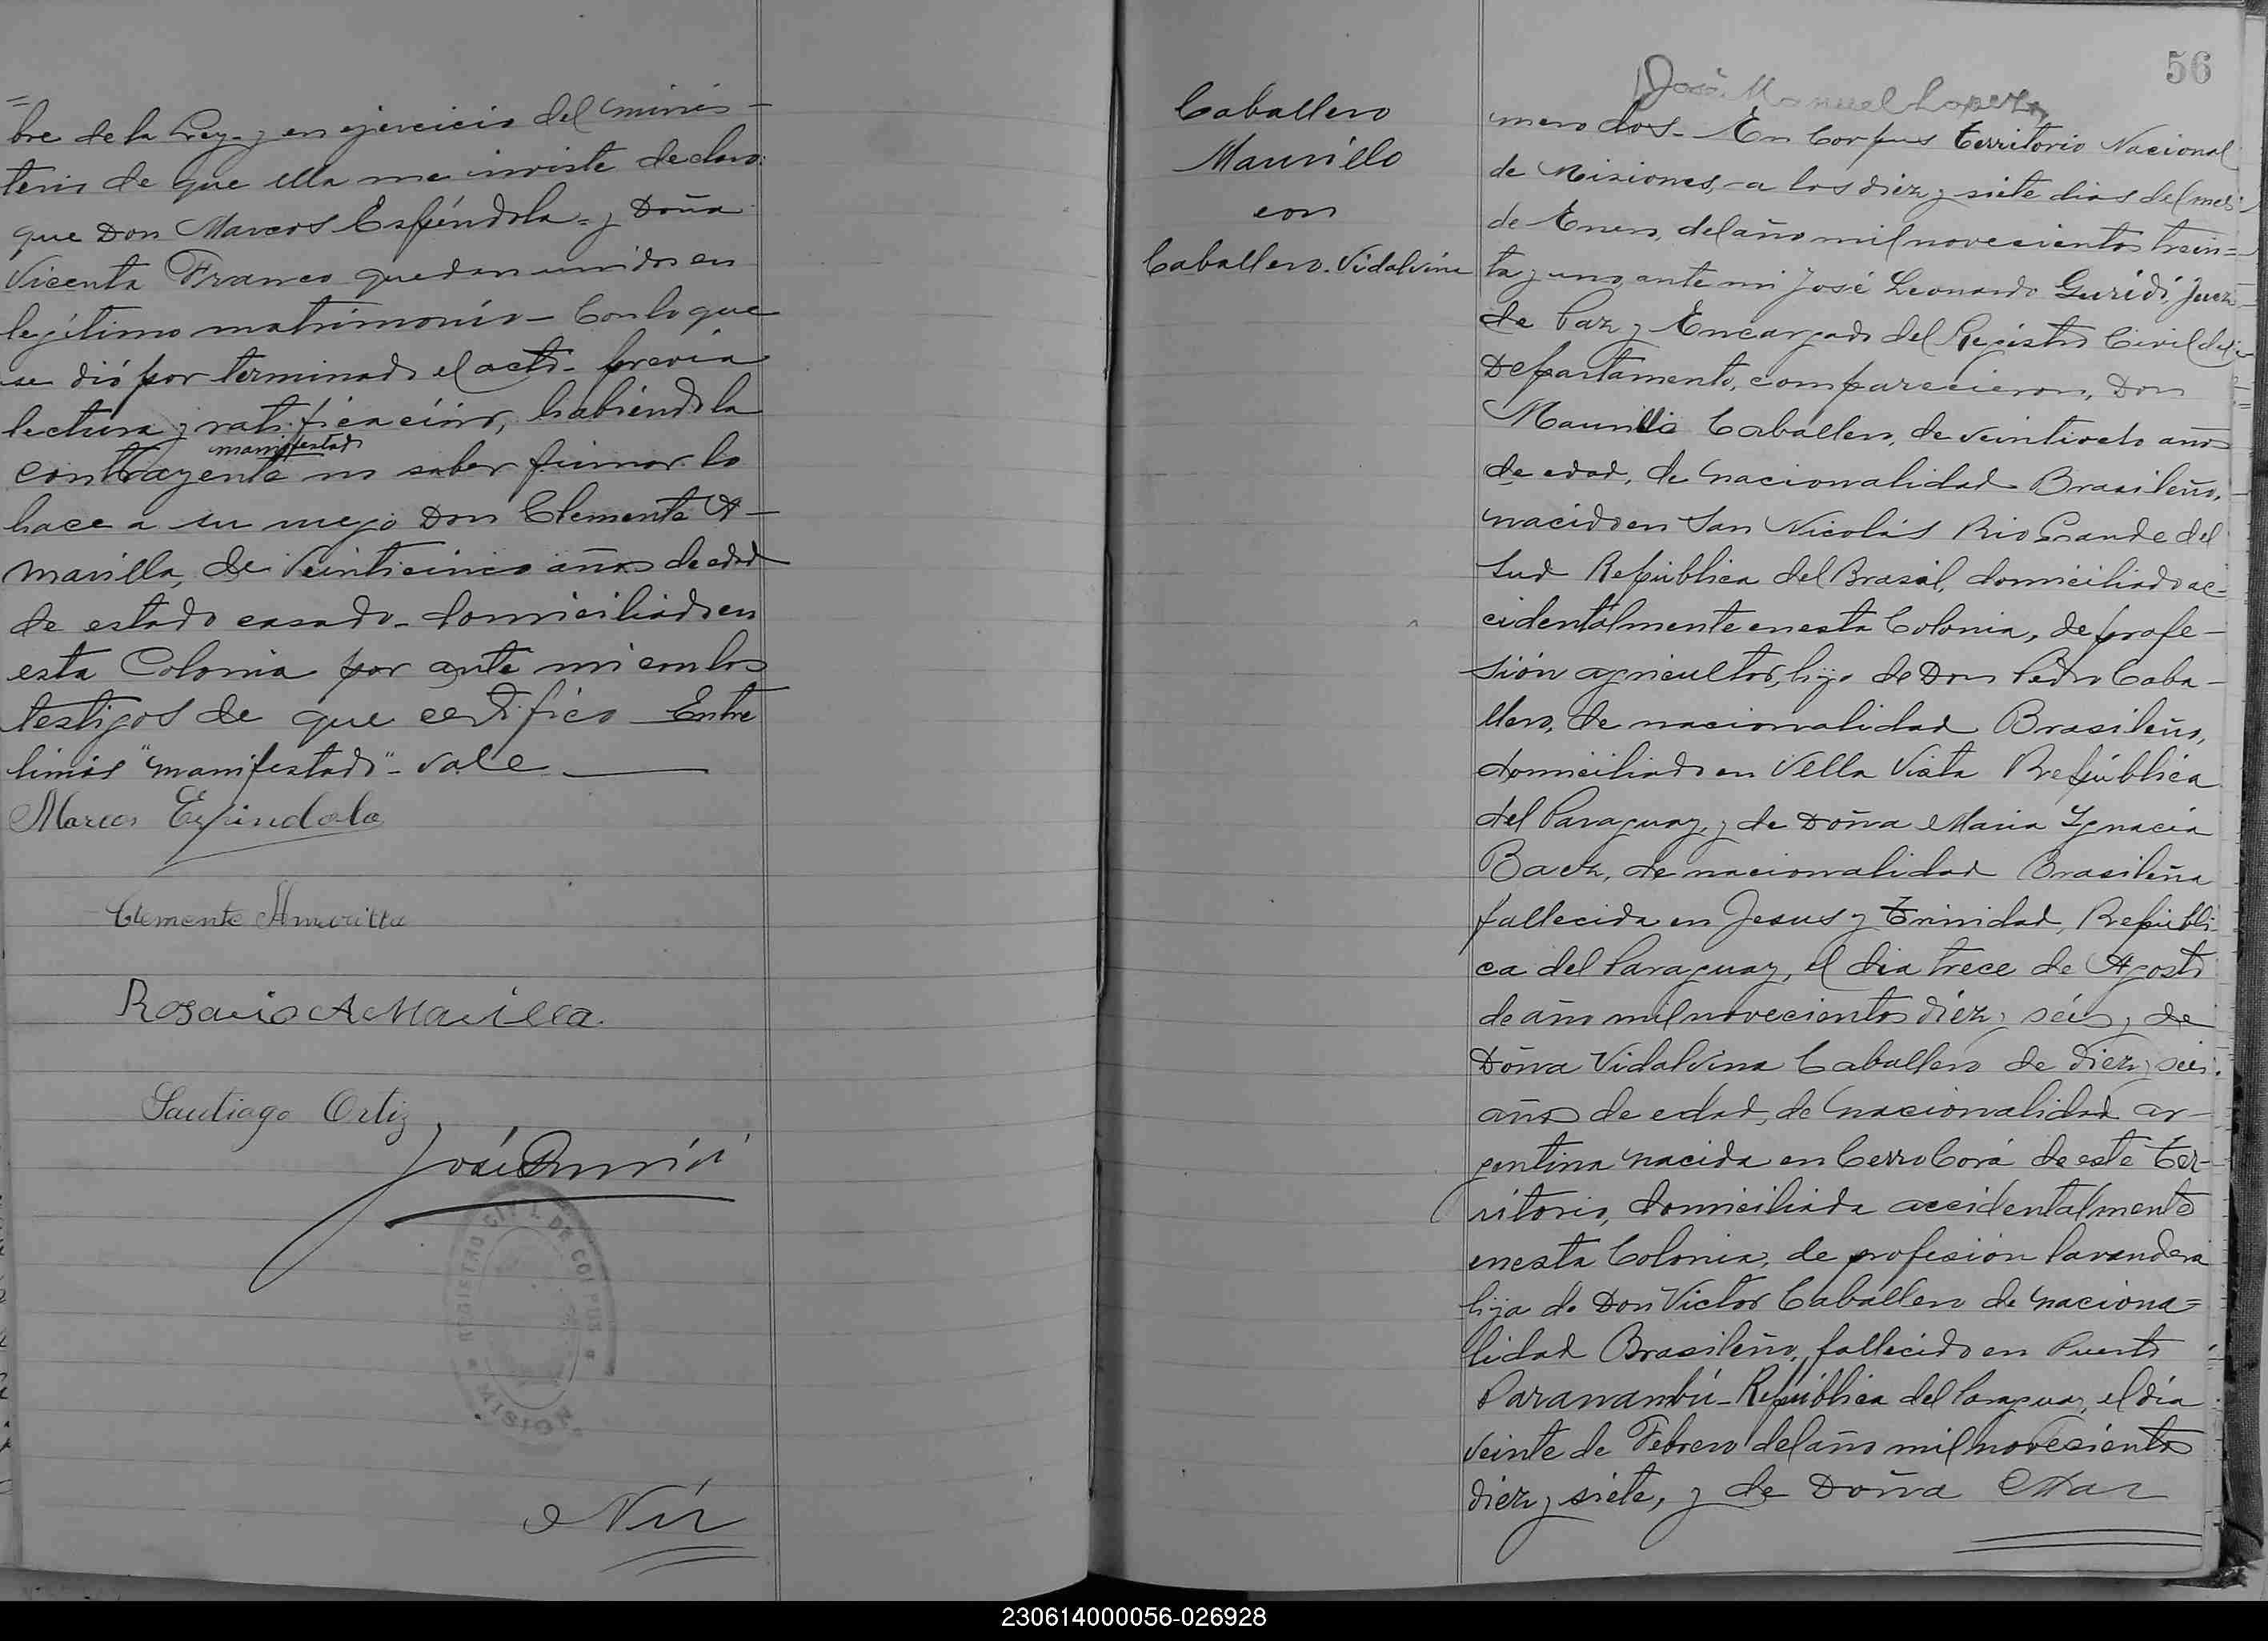 =
bre de la Ley y en ejercicio del minis-
terio de que ella me inviste declaro:
que Don Marcos Espíndola = y Doña
Vicenta Franco quedan unidos en
legítimo matrimonio - Con lo que
se dió por terminado el acto - previa
lectura y ratificación, habiendo la
manifestado
contrayente no saber firmar lo
hace a su ruego Don Clemente A-
marilla, de veinticinco años de edad
de estado casado - domiciliado en
esta Colonia por ante mi con los
testigos de que certifico Entre
linias "manifestado" - vale
Marcos Espindola
Clemente Amarilla
Rosario Amarilla.
Santiago Ortiz
José Guridi
REGISTRO CIVIL DE CORPUS
MISIONES
Nú
56
José Manuel Lopez
Caballero
Maurilio
con
Caballero Vidalvina
mero dos - En Corpus Territorio Nacional
de Misiones, a los diez y siete dias del mes
de Enero, del año mil novecientos trein=
ta y uno, ante mi José Leonardo Guridi, Juez
de Paz y Encargado del Registro Civil del
Departamento, comparecieron, Don
Maurilio Caballero, de veintiocho años
de edad, de nacionalidad Brasileño,
nacido en San Nicolás Rio Grande del
Sud República del Brasil, domiciliado ac-
cidentalmente en esta Colonia, de profe-
sión agricultor, hijo de Don Pedro Caba-
llero, de nacionalidad Brasileño,
domiciliado en Vella Vista República
del Paraguay, y de Doña Maria Ygnacia
Baez, de nacionalidad Brasileña
fallecida en Jesus y Trinidad, Repúbli-
ca del Paraguay, el dia trece de Agosto
de año mil novecientos diéz y séis y de
Doña Vidalvina Caballero de diez y seis
años de edad, de nacionalidad ar-
gentina nacida en Cerro Corá de este Ter-
ritorio, domiciliada accidentalmente
en esta Colonia, de profesión lavandera
hija de Don Victor Caballero de naciona=
lidad Brasileño, fallecido en Puerto
Paranambú - República del Paraguay, el día
veinte de Febrero del año mil novecientos
diez y siete, y de Doña Mar
230614000056-026928